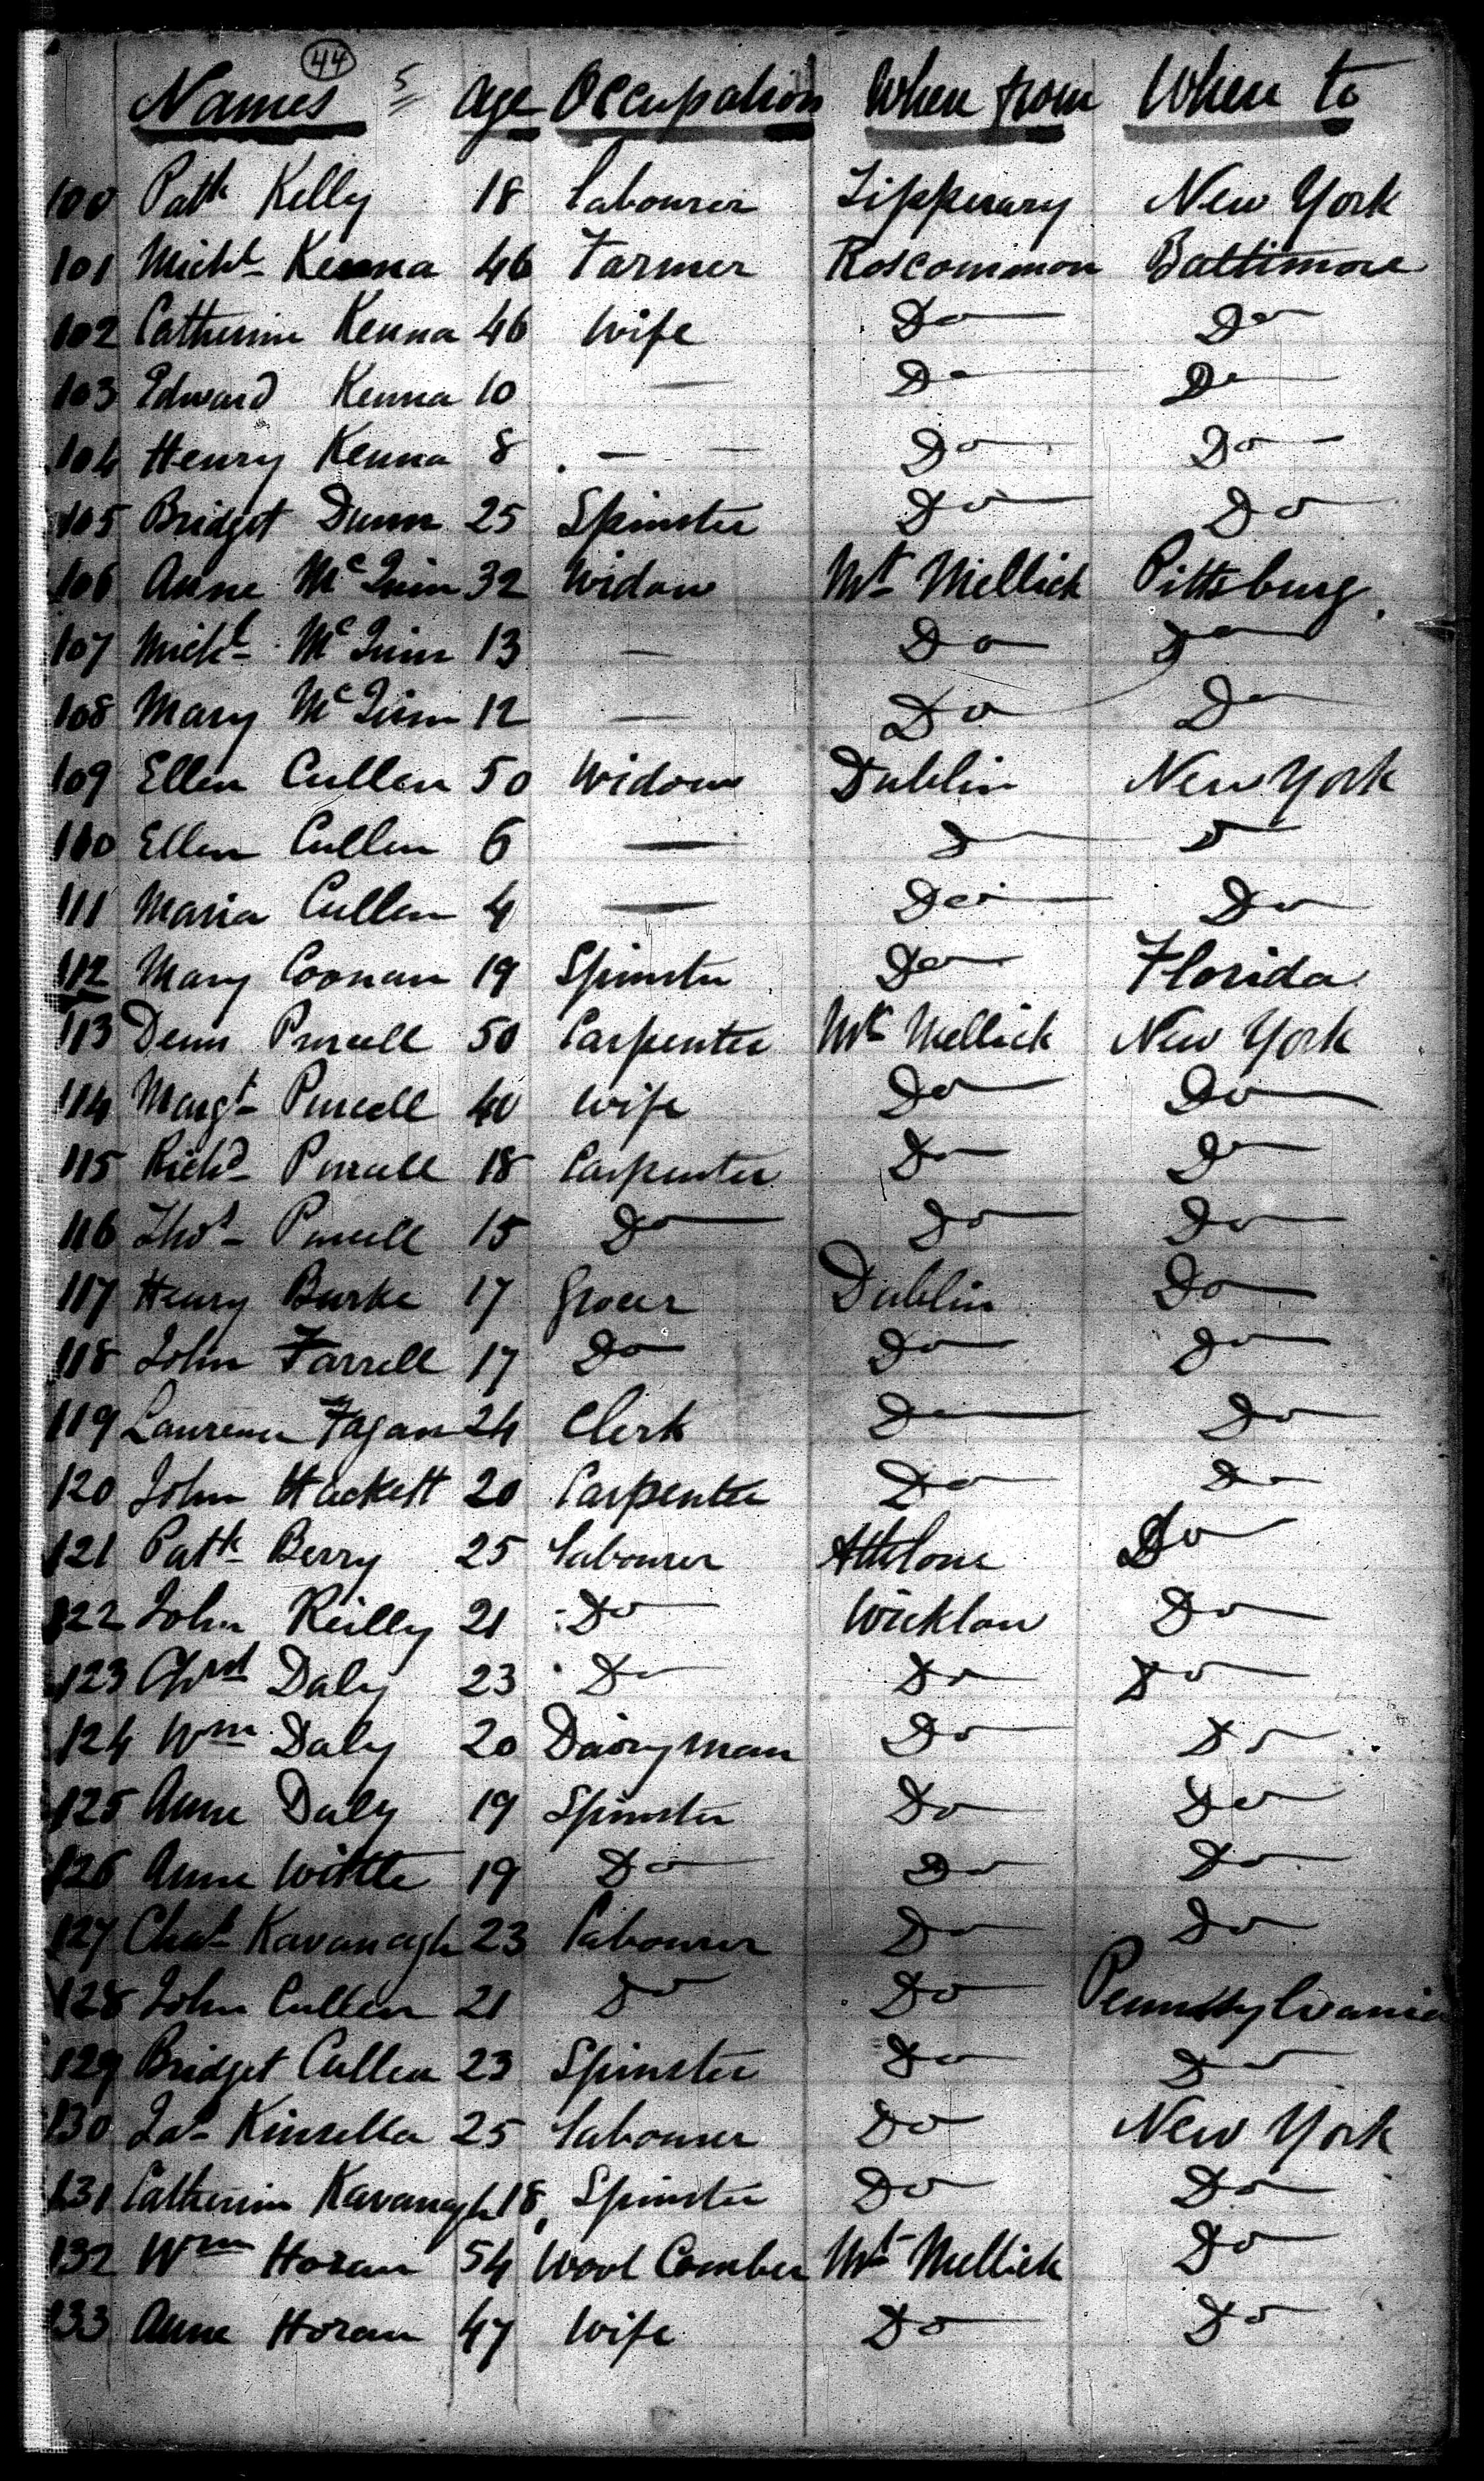 44
Names 5 Age Occupation When from When to
100 Patk Kelly 18 Labourer Tipperary New York
101 Michl Kenna 46 Farmer Roscommon Baltimore
102 Catherine Kenna 46 Wife Do Do
103 Edward Kenna 10 — Do Do
104 Henry Kenna 8 — — Do Do
105 Bridget Dunn 25 Spinster Do Do
106 Anne McQuin 32 Widow Mt Mellick Pittsburg
107 Michl McQuin 13 — Do Do
108 Mary McQuin 12 — Do Do
109 Ellen Cullen 50 Widow Dublin New York
110 Ellen Cullen 6 — Do Do
111 Maria Cullen 4 — Do Do
112 Mary Coonan 19 Spinster Do Florida
113 Denis Purcell 50 Carpenter Mt Mellick New York
114 Margt Purcell 40 Wife Do Do
115 Richd Purcell 18 Carpenter Do Do
116 Thos Purcell 15 Do Do Do
117 Henry Burke 17 Grocer Dublin Do
118 John Farrell 17 Do Do Do
119 Laurence Fagan 24 Clerk Do Do
120 John Hackett 20 Carpenter Do Do
121 Patk Berry 25 Labourer Athlone Do
122 John Reilly 21 Do Wicklow Do
123 Daly 23 Do Do Do
124 Wm Daly 20 Dairyman Do Do
125 Anne Daly 19 Spinster Do Do
126 Anne 19 Do Do Do
127 Chas Kavanagh 23 Labourer Do Do
128 John Cullen 21 Do Do Pennsylvania
129 Bridget Cullen 23 Spinster Do Do
130 Jas Kinsella 25 Labourer Do New York
131 Catherine Kavanagh 18 Spinster Do Do
132 Wm Horan 54 Wool Comber Mt Mellick Do
133 Anne Horan 47 Wife Do Do